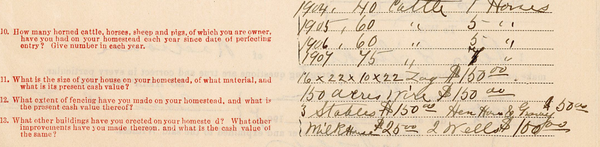 1904, 40 Cattle 1 Horses
10. How many horned cattle, horses, sheep and pigs, of which you are owner,
have you had on your homestead each year since date of perfecting
entry? Give number in each year.
1905, 60 " 5 "
1906, 60 " 5 "
1907 75 " "
11. What is the size of your house on your homestead, of what material, and
what is its present cash value?
16 x 22 x 10 x 22 Log $150.00
12. What extent of fencing have you made on your homestead, and what is
the present cash value thereof?
150 acres Wire $150.00
13. What other buildings have you erected on your homestead? What other
improvements have you made thereon, and what is the cash value of
the same?
3 Stables $150.00 Hen House & Granary $50.00
Milk House $25.00 2 Wells $150.00